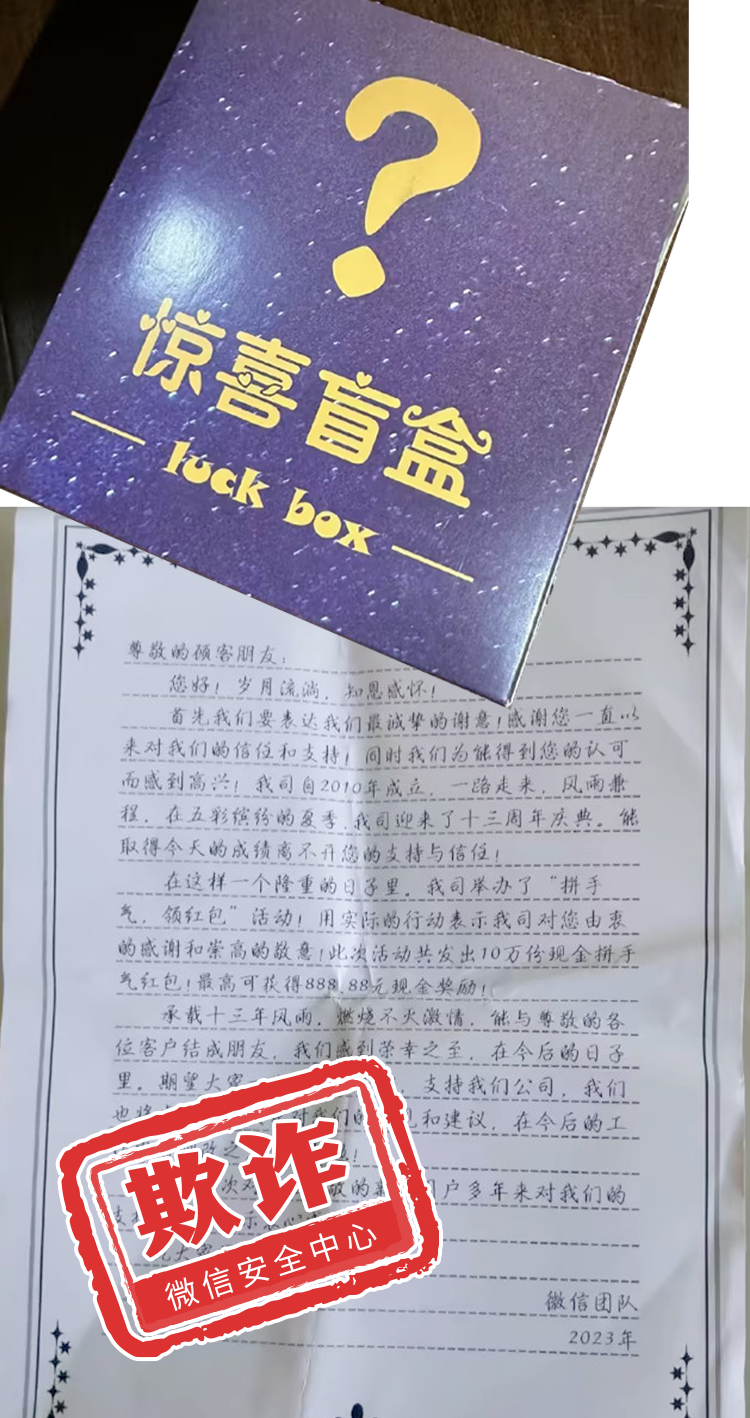 ?
惊喜盲盒
luck box
尊敬的顾客朋友：
您好！岁月流淌，知恩感怀！
首先我们要表达我们最诚挚的谢意！感谢您一直以
来对我们的信任和支持！同时我们为能得到您的认可
而感到高兴！我司自2010年成立，一路走来，风雨兼
程，在五彩缤纷的夏季，我司迎来了十三周年庆典。能
取得今天的成绩离不开您的支持与信任！
在这样一个隆重的日子里。我司举办了“拼手
气，领红包”活动！用实际的行动表示我司对您由衷
的感谢和崇高的敬意！此次活动共发出10万份现金拼手
气红包！最高可获得888.88元现金奖励！
承载十三年风雨，燃烧不火激情，能与尊敬的各
位客户结成朋友，我们感到荣幸之至，在今后的日子
里。期望大家 支持我们公司，我们
也将 对我们的 见和建议，在今后的工
次对 敬的新 用户多年来对我们的
欺诈
微信安全中心
微信团队
2023年